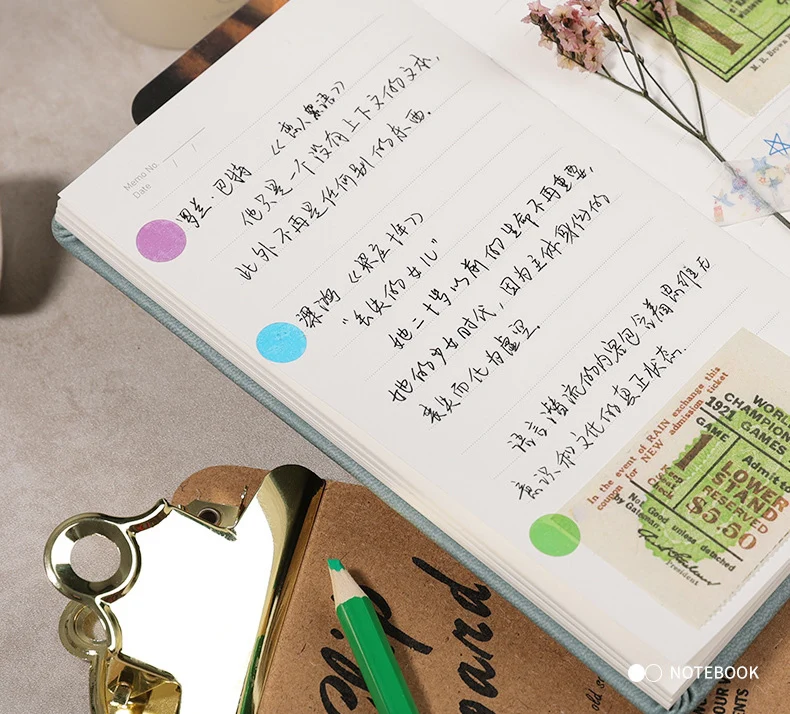 Memo No.
Date / /
罗兰·巴特 《恋人絮语》
他只是一个没有上下文的文本,
此外不再是任何别的东西.
梁鸿 《梁庄十年》
"丢失的女儿"
她二十岁以前的生命不再重要,
她的少女时代, 因为主体身份的
丧失而化为虚空.
语言潜流的内容包含着思维无
意识和文化的真正状态.
1
In the event of RAIN exchange this
coupon for NEW admission ticket
WORL
CHAMPION
1921 GAMES
GAME
1
Admit to
LOWER
STAND
RESERVED
$5.50
Not Good unless detached
by Gateman.
President
Clip
oard
NOTEBOOK